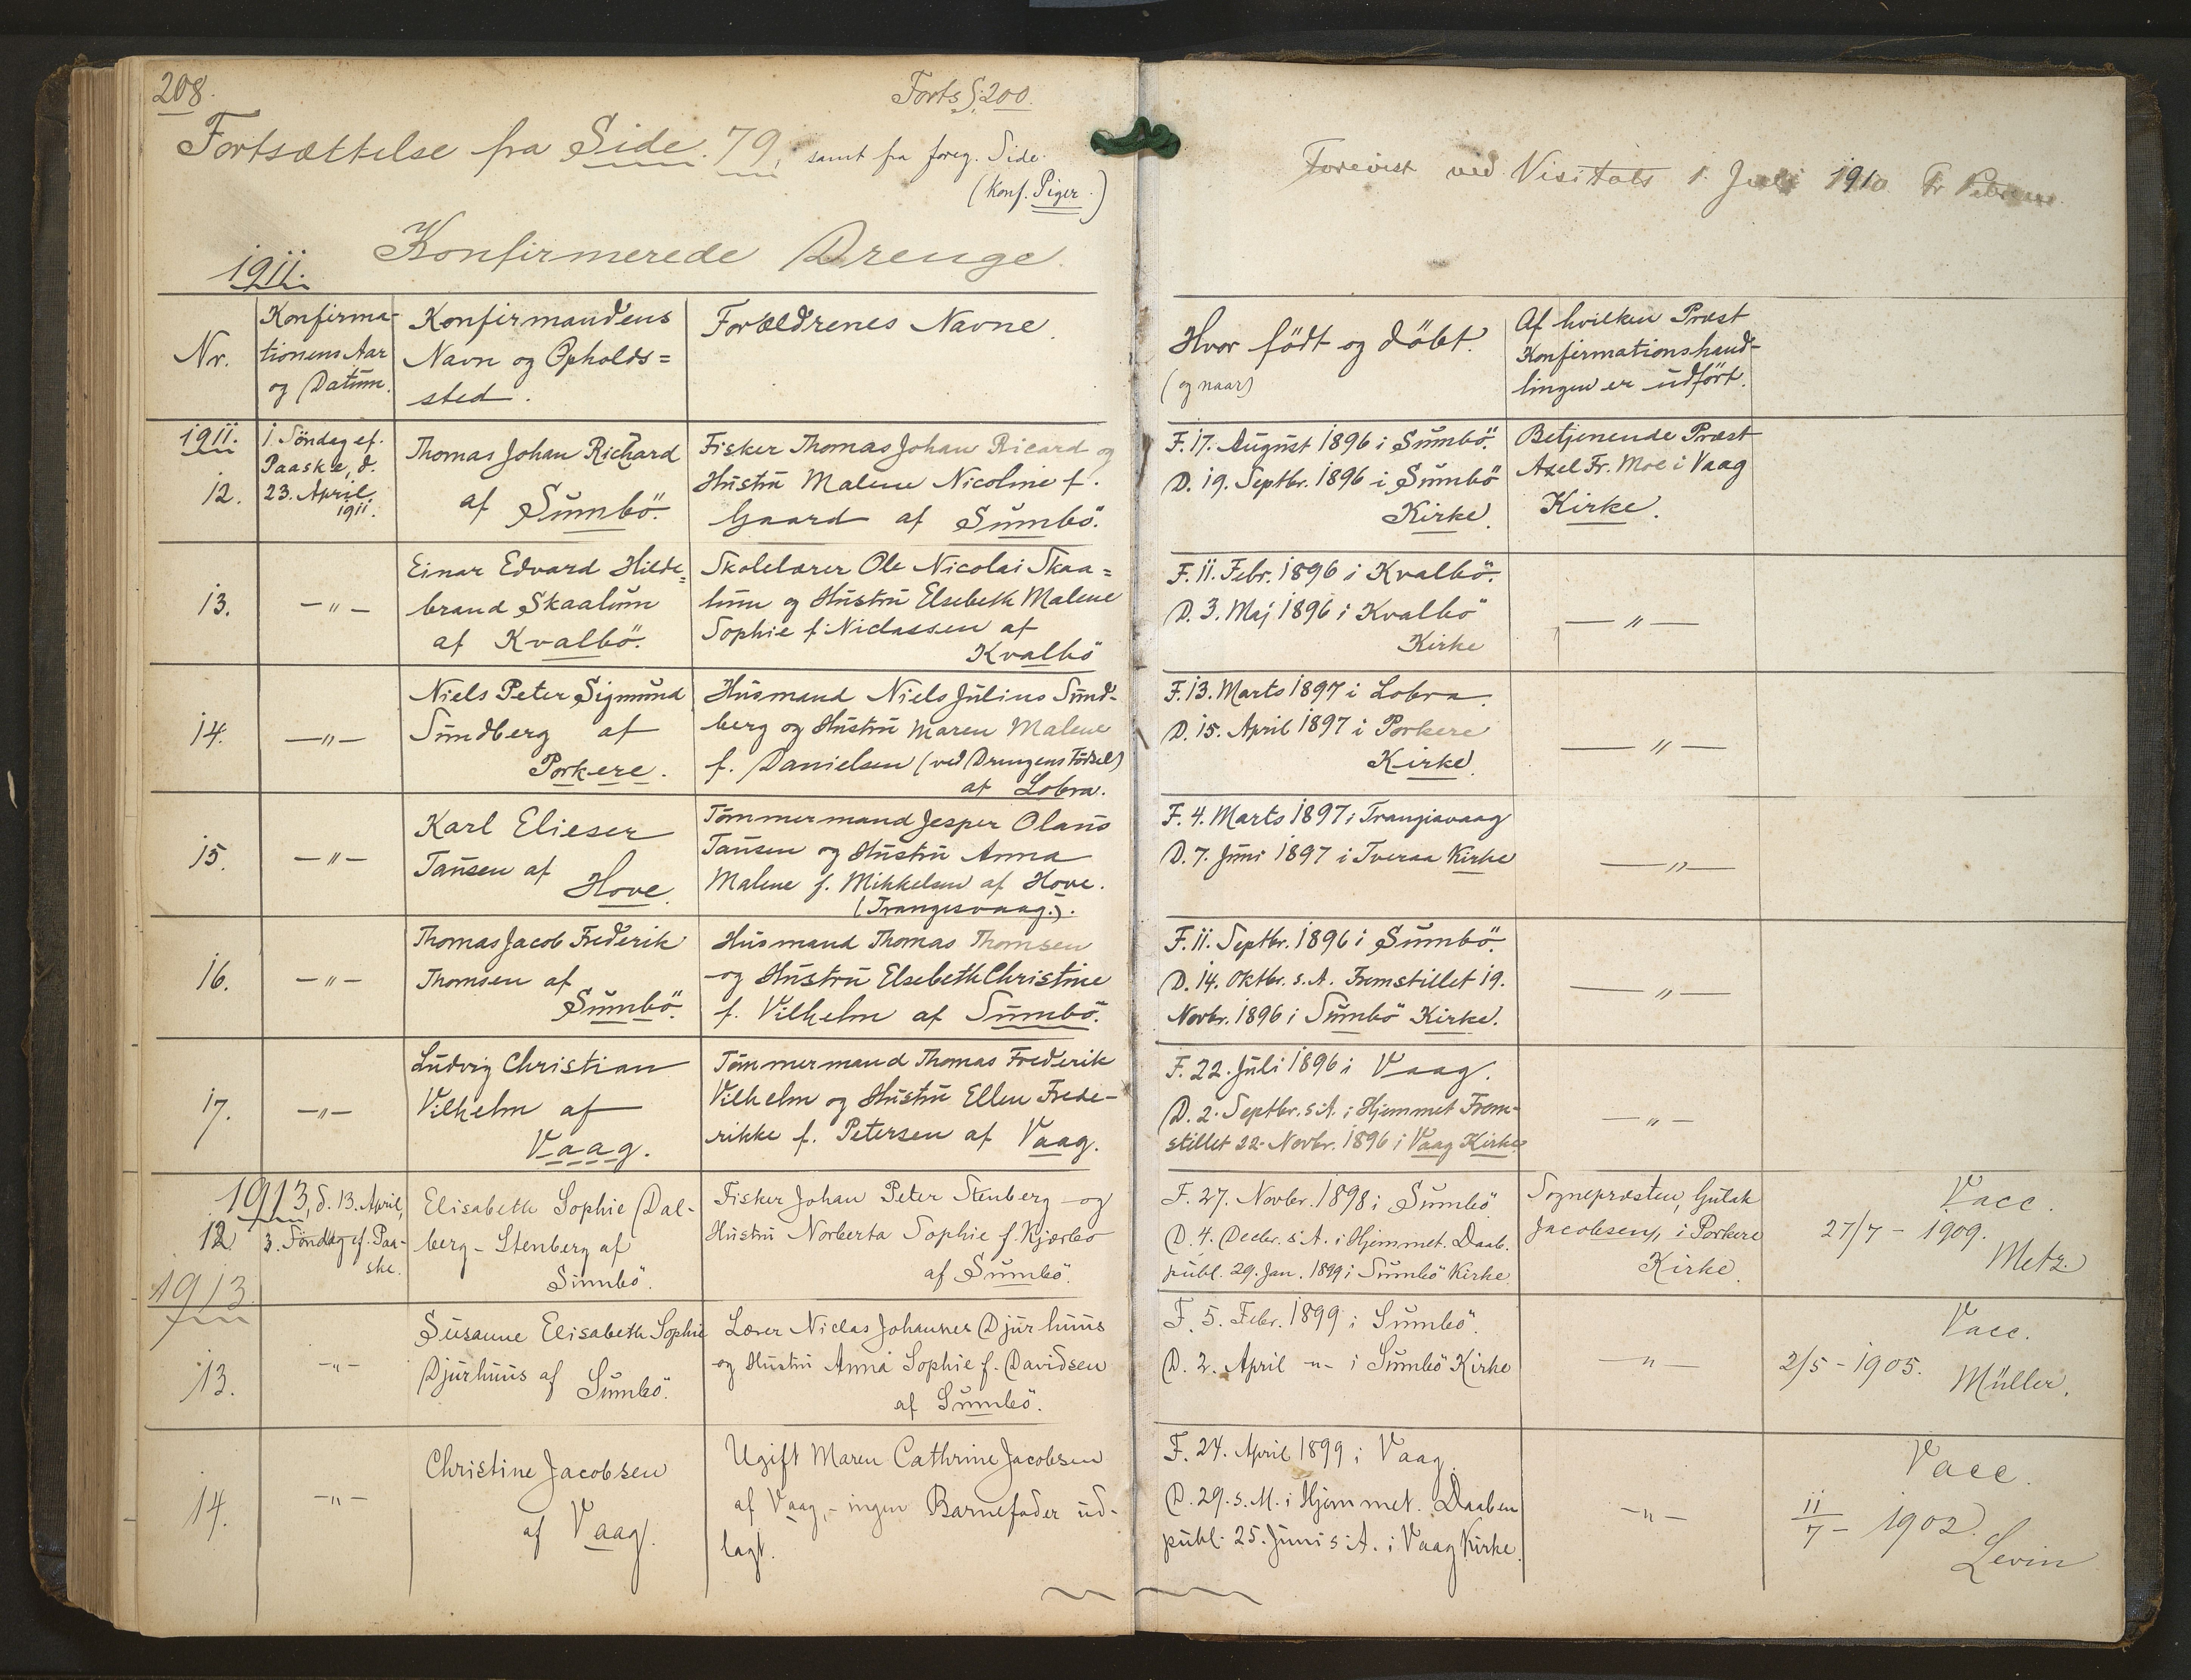 208.
Forts S. 200.
Fortsættelse fra Side 79, samt fra foreg. Side.
(Konf. Piger.)
Forevist ved Visitats 1. Juli 1910
Konfirmerede Drenge
1911.
Nr.
Konfirma-
tionens Aar
og Datum.
Konfirmandens
Navn og Opholds=
sted.
Forældrenes Navne.
Hvor födt og döbt.
(og naar)
Af hvilken Præst
Konfirmationshand-
lingen er udfört.
1911.
12.
1. Söndag ef.
Paaske, d.
23. April
1911.
Thomas Johan Richard
af Sumbö.
Fisker Thomas Johan Ricard og
Hustru Malene Nicoline f.
Gaard af Sumbö.
F. 17. August 1896 i Sumbö.
D. 19. Septbr. 1896 i Sumbö
Kirke.
Betjenende Præst
Axel Fr. Moe i Vaag
Kirke.
13.
-"-
Einar Edvard Hilde=
brand Skaalum
af Kvalbö.
Skolelærer Ole Nicolai Skaa=
lum og Hustru Elsebeth Malene
Sophie f. Niclassen af
Kvalbö
F. 11. Febr. 1896 i Kvalbö.
D. 3. Maj 1896 i Kvalbö
Kirke
-"-
14.
-"-
Niels Peter Sigmund
Sundberg af
Porkere.
Husmand Niels Julius Sund-
berg og Hustru Maren Malene
f. Danielsen (ved Drengens Födsel)
af Lobra.
F. 13. Marts 1897 i Lobra.
D. 15. April 1897 i Porkere
Kirke.
-"-
15.
-"-
Karl Elieser
Tausen af
Hove.
Tömmermand Jesper Olaus
Tausen og Hustru Anna
Malene f. Mikkelsen af Hove.
(Trangesvaag.).
F. 4. Marts 1897 i Trangisvaag
D. 7. Juni 1897 i Tveraa Kirke
-"-
16.
-"-
Thomas Jacob Frederik
Thomsen af
Sumbö.
Husmand Thomas Thomsen
og Hustru Elsebeth Christine
f. Vilhelm af Sumbö.
F. 11. Septbr. 1896 i Sumbö.
D. 14. Oktbr. s.A. Fremstillet 19.
Novbr. 1896 i Sumbö Kirke.
-"-
17.
-"-
Ludvig Christian
Vilhelm af
Vaag.
Tömmermand Thomas Frederik
Vilhelm og Hustru Ellen Frede-
rikke f. Petersen af Vaag.
F. 22. Juli 1896 i Vaag.
D. 2. Septbr. s.A. i Hjemmet Frem-
stillet 22. Novbr. 1896 i Vaag Kirke
-"-
1913, d. 13. April,
12.
3. Söndag ef. Paa-
ske.
1913.
Elisabeth Sophie Dal-
berg-Stenberg af
Sumbö.
Fisker Johan Peter Stenberg og
Hustru Norberta Sophie f. Kjærbo
af Sumbö.
F. 27. Novbr. 1898 i Sumbö
D. 4. Decbr. s.A. i Hjemmet. Daab.
publ. 29. Jan. 1899 i Sumbö Kirke
Sognepræsten, Gutak
Jacobsen, i Porkere
Kirke.
Vacc.
27/7 - 1909.
Metz.
13.
-"-
Susanne Elisabeth Sophie
Djurhuus af Sumbö.
Lærer Niclas Johannes Djurhuus
og Hustru Anna Sophie f. Davidsen
af Sumbö.
F. 5. Febr. 1899 i Sumbö.
D. 2. April -"- i Sumbö Kirke
-"-
Vacc.
2/5 - 1905.
Müller.
14.
-"-
Christine Jacobsen
af Vaag.
Ugift Maren Cathrine Jacobsen
af Vaag, - ingen Barnefader ud-
lagt.
F. 24. April 1899 i Vaag.
D. 29. s.M. i Hjemmet. Daaben
publ. 25. Juni s.A. i Vaag Kirke.
-"-
Vacc.
11/7 - 1902.
Levin